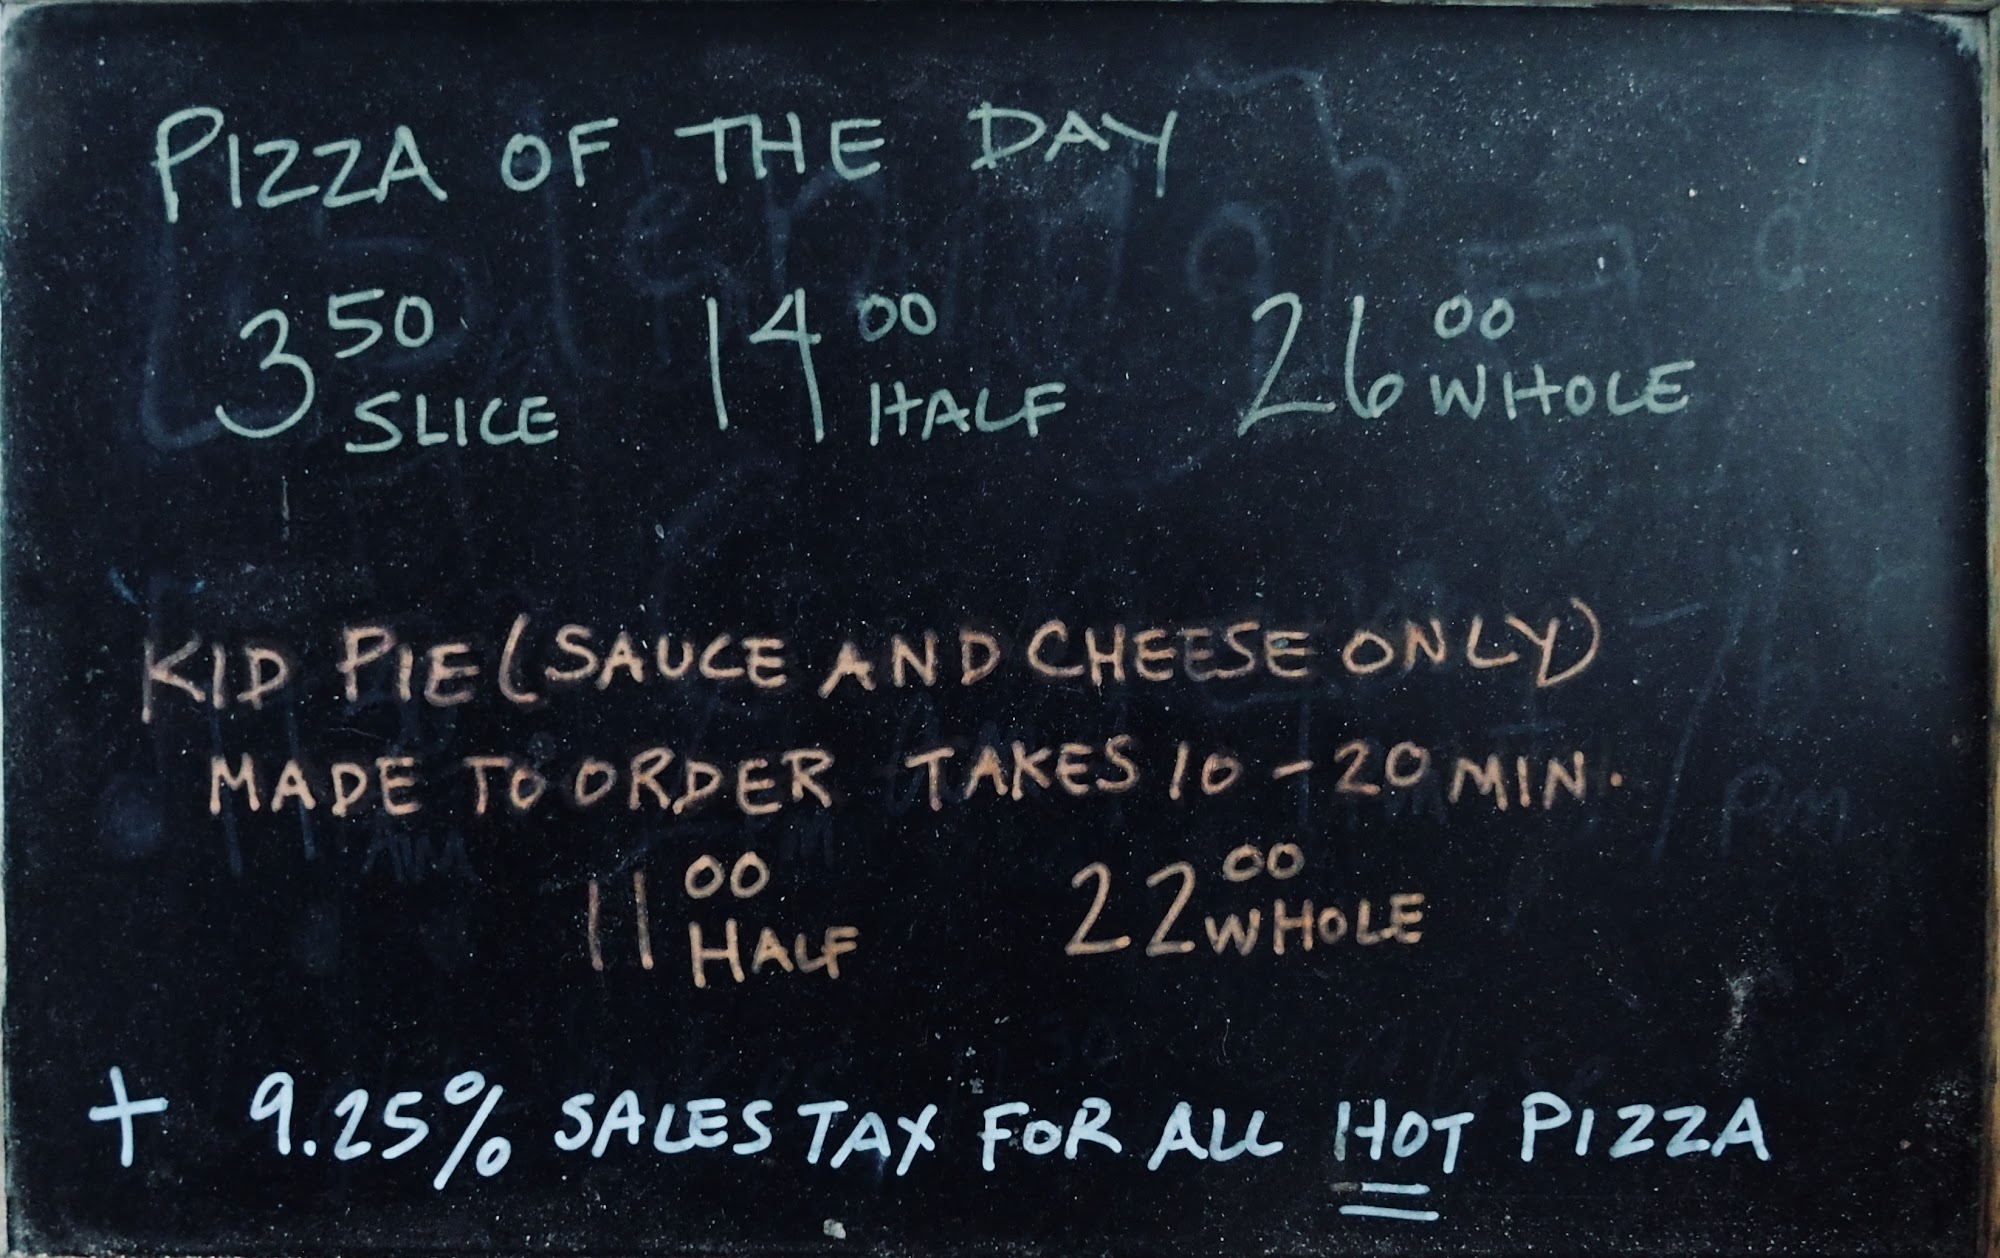 PIZZA OF THE DAY
3 50 SLICE 14 00 HALF 26 00 WHOLE
KID PIE (SAUCE AND CHEESE ONLY)
MADE TO ORDER TAKES 10 - 20 MIN.
11 00 HALF 22 00 WHOLE
+ 9.25% SALES TAX FOR ALL HOT PIZZA